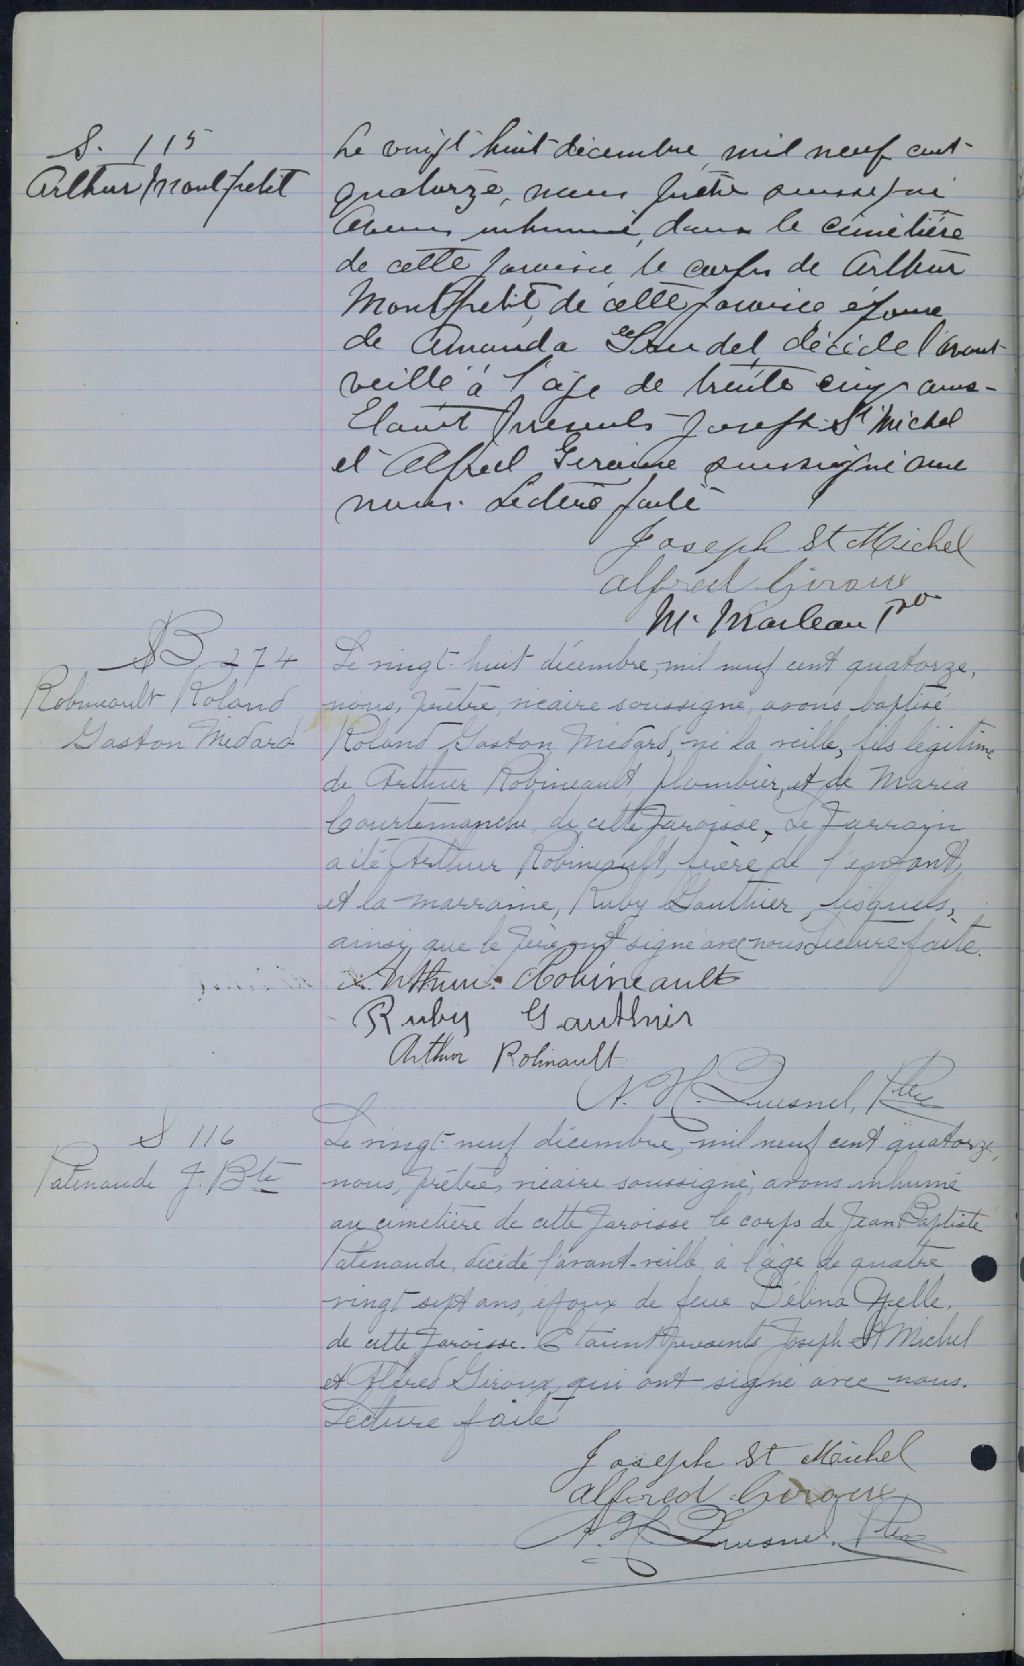 S. 115
Arthur Montpetit
Le vingt huit décembre, mil neuf cent
quatorze, nous prêtre soussigné
avons inhumé, dans le cimetière
de cette paroisse le corps de Arthur
Montpetit, de cette paroisse, époux
de Amanda décédé l'avant
veille à l'âge de trente cinq ans-
Etaient présents Joseph St Michel
et Alfred Giroux soussigné avec
nous. Lecture faite
Joseph St Michel
Alfred Giroux
M. Marleau Ptre
B 274
Robineault Roland
Gaston Médard
Le vingt-huit décembre, mil neuf cent quatorze,
nous, prêtre, vicaire soussigné, avons baptisé
Roland Gaston Médard, né la veille, fils légitime
de Arthur Robineault, plombier, et de Maria
Courtemanche, de cette paroisse. Le parrain
a été Arthur Robineault, frère de l'enfant,
et la marraine, Ruby Gauthier, lesquels,
ainsi que le père ont signé avec nous Lecture faite.
Arthur Robineault
Ruby Gauthier
Arthur Robinault
A. H. Quesnel, Ptre
S 116
Patenaude J. Bte
Le vingt-neuf décembre, mil neuf cent quatorze,
nous, prêtre, vicaire soussigné, avons inhumé
au cimetière de cette paroisse le corps de Jean Baptiste
Patenaude, décédé l'avant-veille à l'âge de quatre
vingt sept ans, époux de feue Délina Yelle,
de cette paroisse. Etaient présents Joseph St Michel
et Alfred Giroux qui ont signé avec nous.
Lecture faite
Joseph St Michel
Alfred Giroux
A. H. Quesnel, Ptre